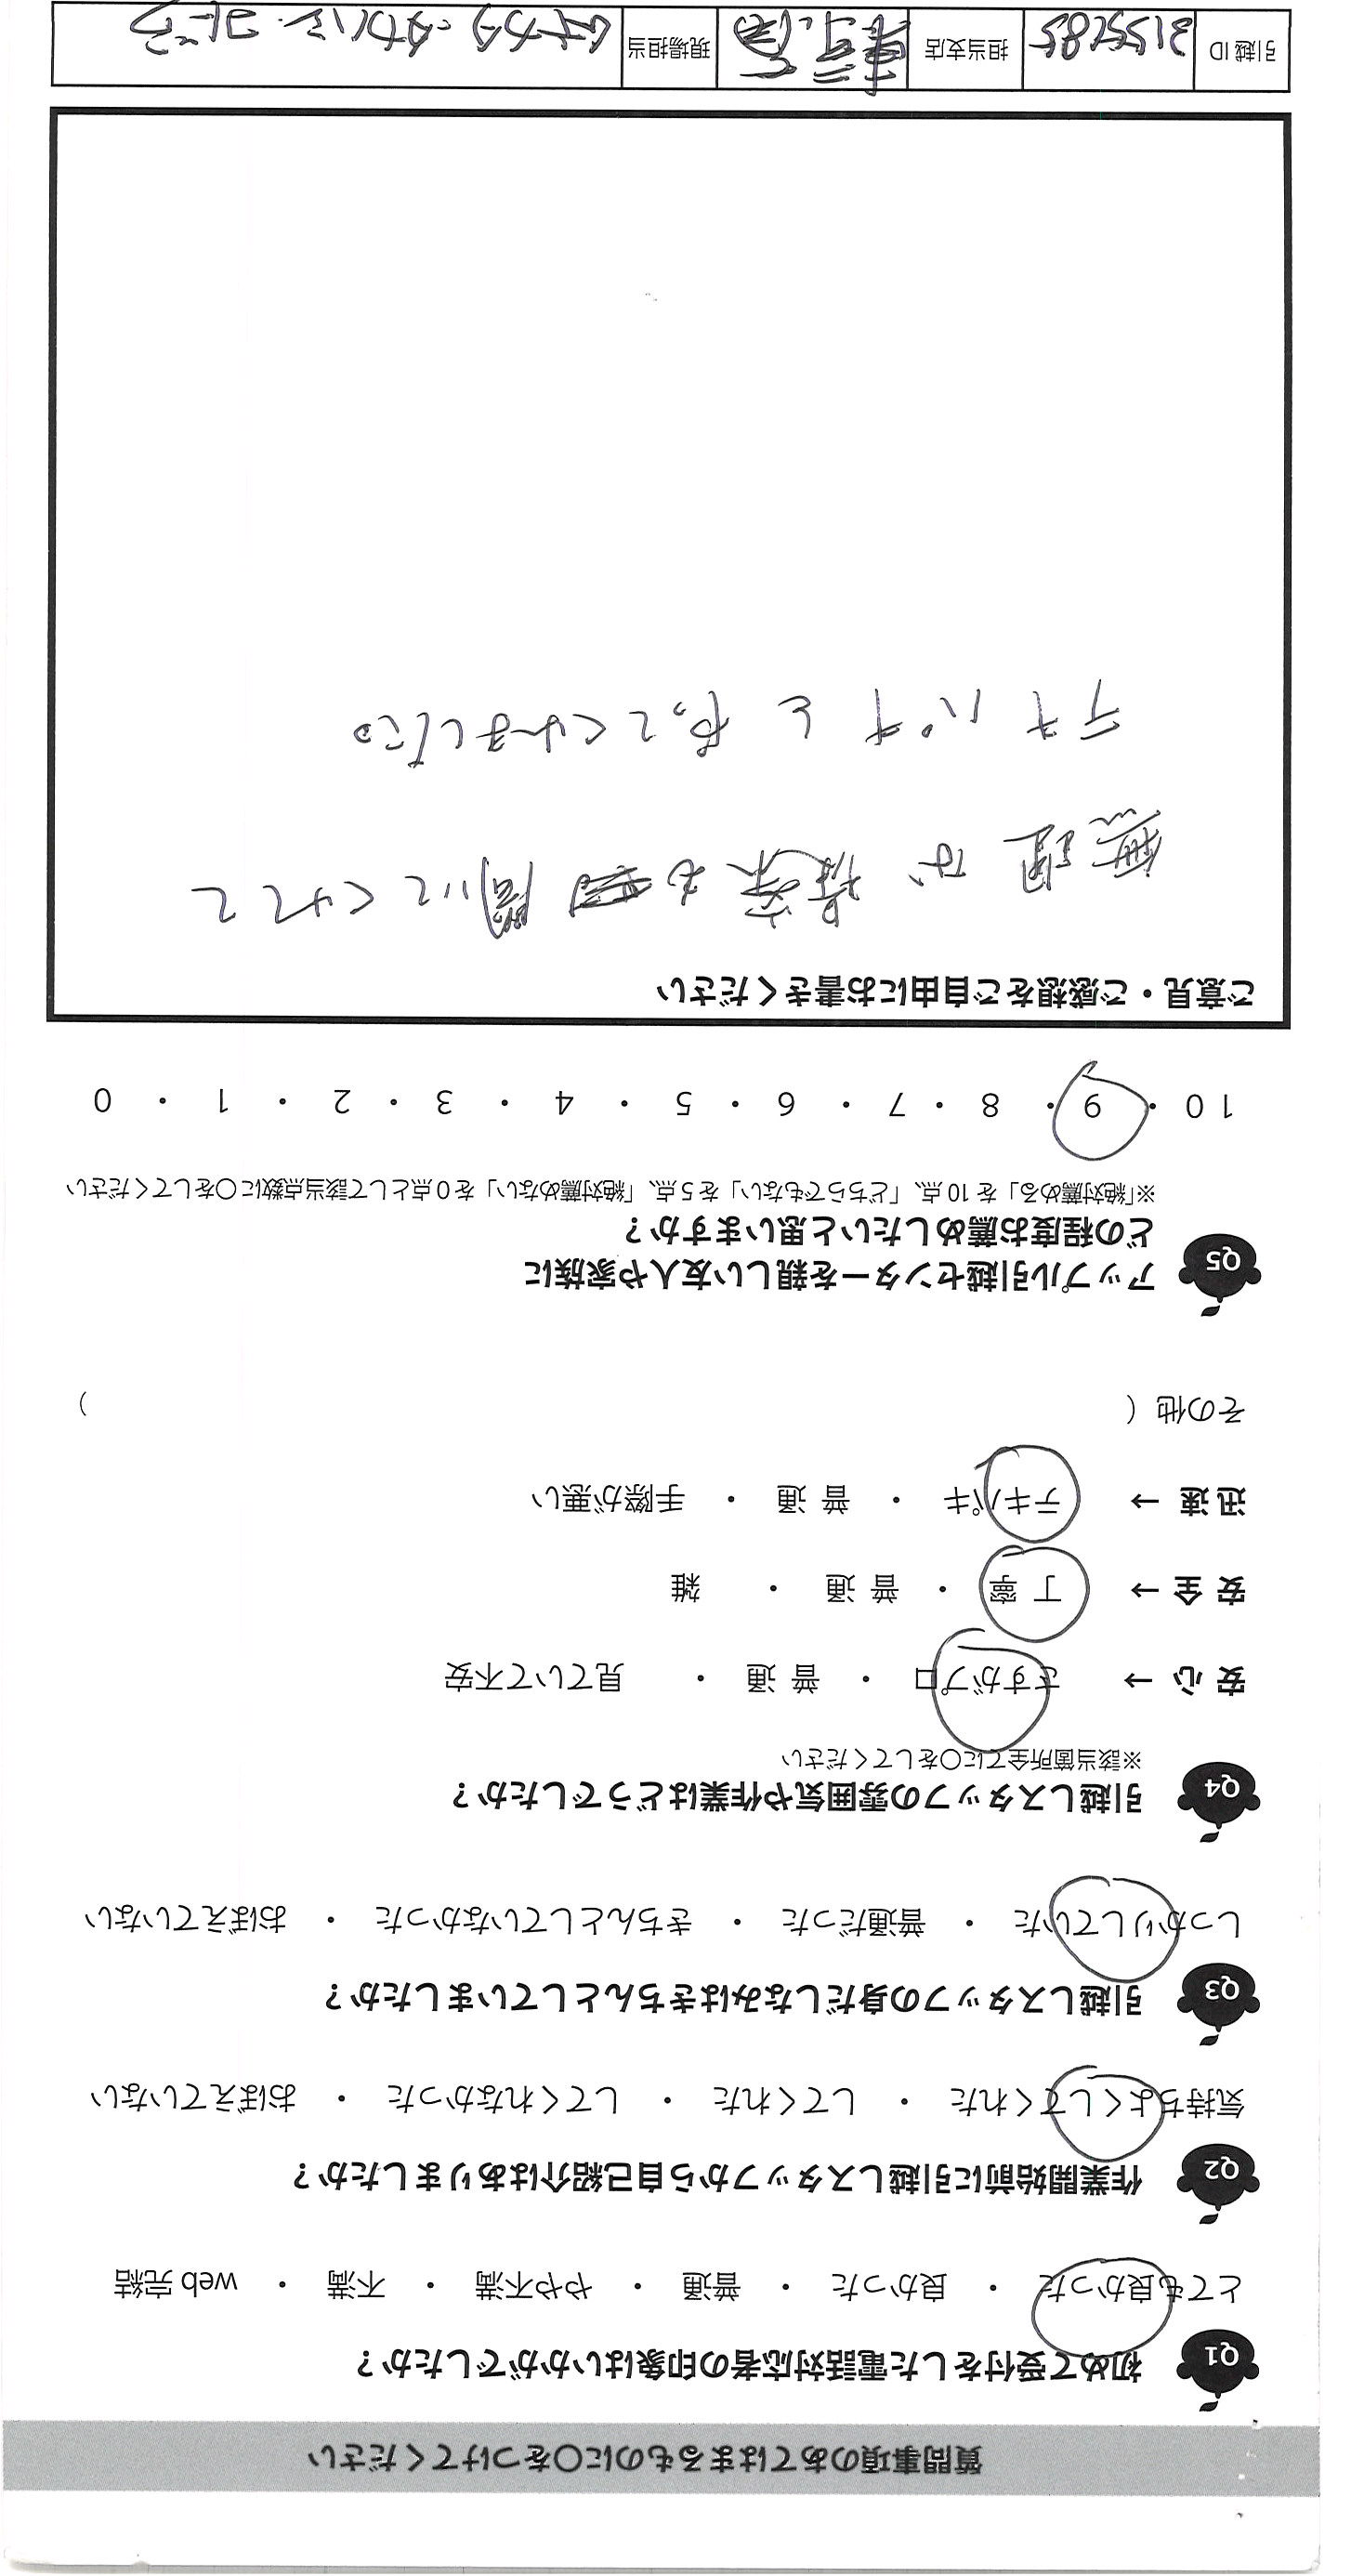 質問事項のあてはまるものに○をつけてください
Q1 初めて受付をした電話対応者の印象はいかがでしたか？
とても良かった ・ 良かった ・ 普通 ・ やや不満 ・ 不満 ・ web 完結
Q2 作業開始前に引越しスタッフから自己紹介はありましたか？
気持ちよくしてくれた ・ してくれた ・ してくれなかった ・ おぼえていない
Q3 引越しスタッフの身だしなみはきちんとしていましたか？
しっかりしていた ・ 普通だった ・ きちんとしていなかった ・ おぼえていない
Q4 引越しスタッフの雰囲気や作業はどうでしたか？
※該当箇所全てに○をしてください
安 心 → さすがプロ ・ 普 通 ・ 見ていて不安
安 全 → 丁 寧 ・ 普 通 ・ 雑
迅 速 → テキパキ ・ 普 通 ・ 手際が悪い
その他（ ）
Q5 アップル引越センターを親しい友人や家族に
どの程度お薦めしたいと思いますか？
※「絶対薦める」を 10 点、「どちらでもない」を 5 点、「絶対薦めない」を 0 点として該当点数に○をしてください
10 ・ 9 ・ 8 ・ 7 ・ 6 ・ 5 ・ 4 ・ 3 ・ 2 ・ 1 ・ 0
ご意見・ご感想をご自由にお書きください
無理な 提案も 聞いてくれて
テキパキと やってくれました。
引越 ID 3155285 担当支店 現場担当